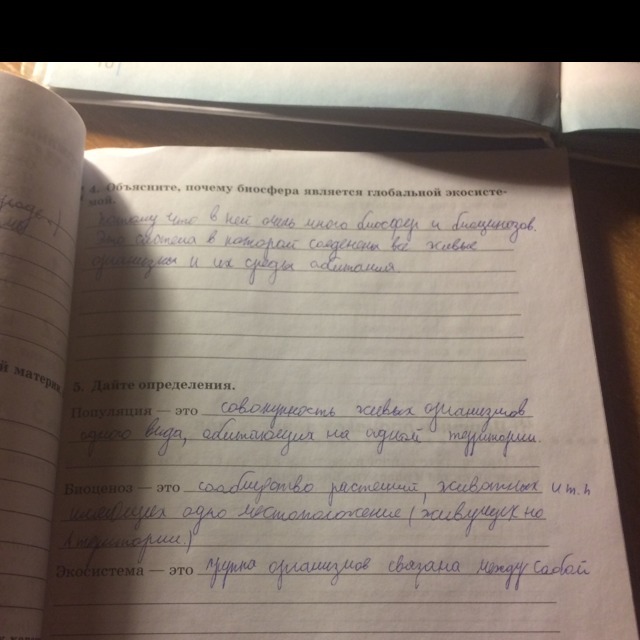 4. Объясните, почему биосфера является глобальной экосисте-
мой.
потому что в ней очень много биосфер и биоцинозов.
Это система в которой соеденены все живые
организмы и их среды обитания
й матери
5. Дайте определения.
Популяция — это совокупность живых организмов
одного вида, обитающих на одной территории.
Биоценоз — это сообщество растений, животных и т.п
имеющих одно местоположение (живущих на
1 территории.)
Экосистема — это группа организмов связана между сабой